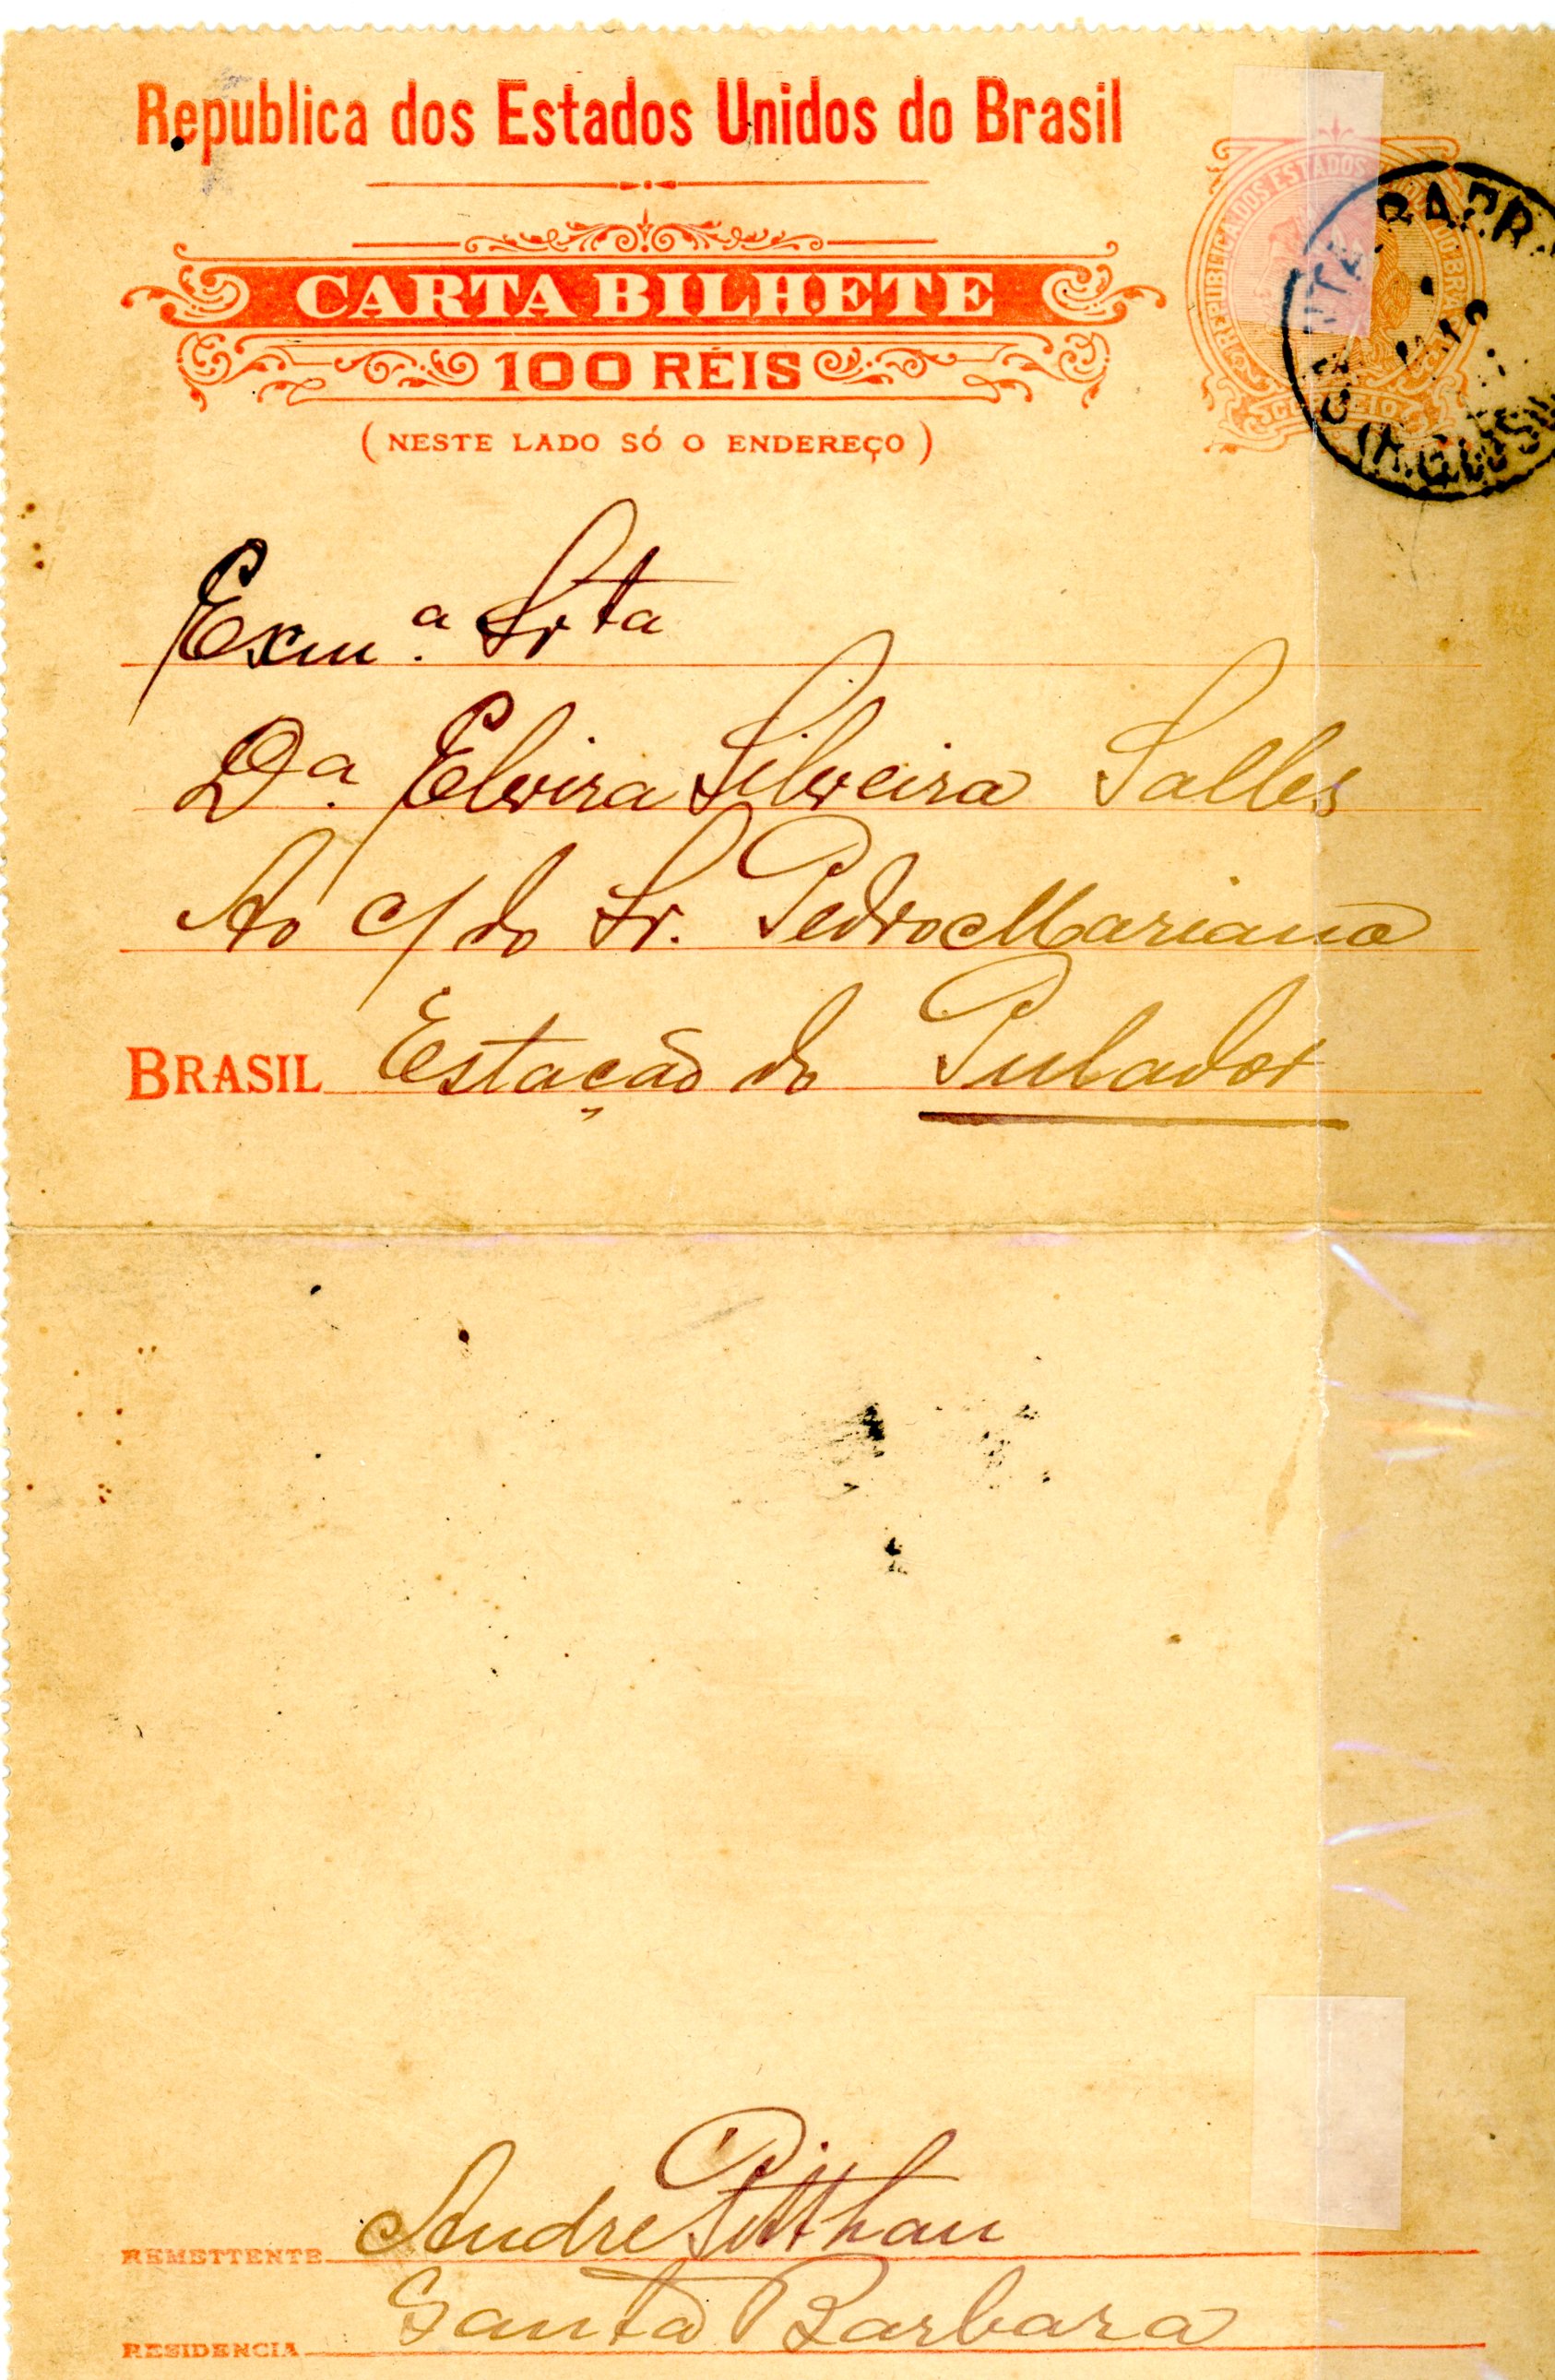 Republica dos Estados Unidos do Brasil
CARTA BILHETE
100 RÉIS
(NESTE LADO SÓ O ENDEREÇO)
REPUBLICA DOS ESTADOS
CORREIO
Exm.ª Srta
Dª. Elvira Silveira Salles
Ao c/ do Sr. Pedro Mariano
BRASIL Estação do Pulador
REMETTENTE Andre Pitthan
RESIDENCIA Santa Barbara